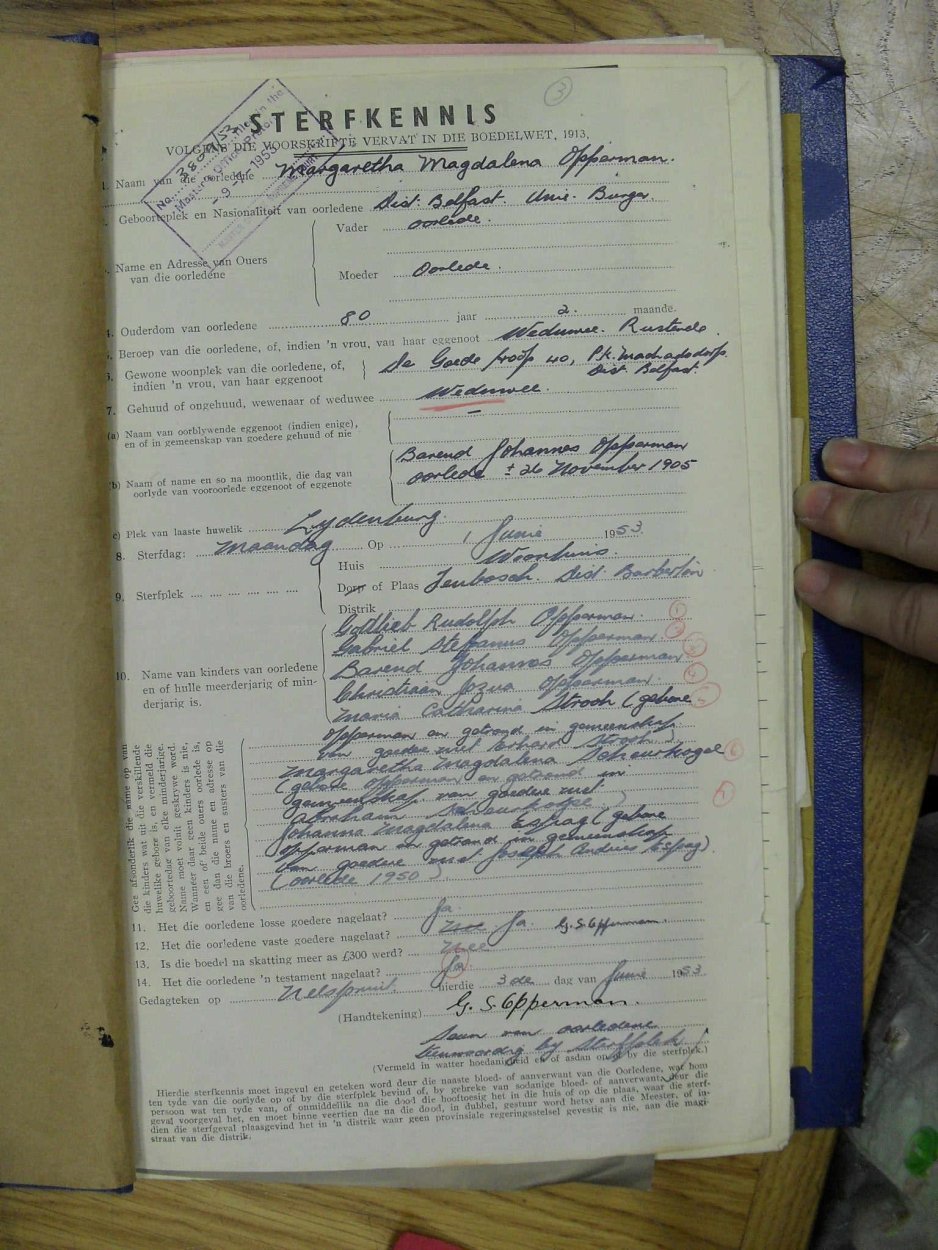 3
STERFKENNIS
VOLGENS DIE VOORSKRIFTE VERVAT IN DIE BOEDELWET, 1913.
No. 3804/53
-9-7-1953
1. Naam van die oorledene Margaretha Magdalena Opperman.
Geboorteplek en Nasionaliteit van oorledene Dist. Belfast. Unie. Burger
Name en Adresse van Ouers van die oorledene
Vader oorlede.
Moeder Oorlede.
4. Ouderdom van oorledene 80 jaar 2. maande.
5. Beroep van die oorledene, of, indien 'n vrou, van haar eggenoot Weduwee. Rustende.
6. Gewone woonplek van die oorledene, of, indien 'n vrou, van haar eggenoot
De Goede Hoop 40, P.K. Machadodorp.
Dist. Belfast
7. Gehuud of ongehuud, wewenaar of weduwee Weduwee.
(a) Naam van oorblywende eggenoot (indien enige), en of in gemeenskap van goedere gehuud of nie –
(b) Naam of name en so na moontlik, die dag van oorlyde van vooroorlede eggenoot of eggenote
Barend Johannes Opperman
oorlede ± 26 November 1905
c) Plek van laaste huwelik Lydenburg.
8. Sterfdag: Maandag Op 1 Junie 1953
9. Sterfplek
Huis Woonhuis.
Dorp of Plaas Tenbosch. Dist. Barberton
Distrik
10. Name van kinders van oorledene en of hulle meerderjarig of minderjarig is.
Gottlieb Rudolph Opperman 1
Gabriel Stefanus Opperman 2
Barend Johannes Opperman 3
Christiaan Jozua Opperman. 4
Maria Catharina Stroch (gebore 5
Opperman en getroud in gemeenskap
van goedere met Erhard Stroch)
Margaretha Magdalena 6
(gebore Opperman en getroud in
gemeenskap van goedere met
Abraham
Johanna Magdalena Espag (gebore
Opperman en getroud in gemeenskap
van goedere met Joseph Andries Espag)
(oorlede 1950)
Gee afsonderlik die name op van die kinders wat uit die verskillende huwelike gebore is, en vermeld die geboortedag van elke minderjarige. Name moet voluit geskrywe word. Wanneer daar geen kinders is nie, en een of beide ouers oorlede is, gee dan die name en adresse op van die broers en susters van die oorledene.
11. Het die oorledene losse goedere nagelaat? Ja
12. Het die oorledene vaste goedere nagelaat? Nee Ja G.S. Opperman.
13. Is die boedel na skatting meer as £300 werd? Nee
14. Het die oorledene 'n testament nagelaat? Ja
Gedagteken op Nelspruit. hierdie 3de dag van Junie 1953
(Handtekening) G. S. Opperman.
Seun van oorledene
teenwoordig by Sterfplek
(Vermeld in watter hoedanigheid en of asdan op of by die sterfplek.)
Hierdie sterfkennis moet ingevul en geteken word deur die naaste bloed- of aanverwant van die Oorledene, wat hom
ten tyde van die oorlyde op of by die sterfplek bevind of, by gebreke van sodanige bloed- of aanverwant, deur die
persoon wat ten tyde van, of onmiddellik na die dood die hooftoesig het in die huis of op die plaas, waar die sterf-
geval voorgeval het, en moet binne veertien dae na die dood, in dubbel, gestuur word hetsy aan die Meester, of in-
dien die sterfgeval plaasgevind het in 'n distrik waar geen provinsiale regeringsstelsel gevestig is nie, aan die magi-
straat van die distrik.